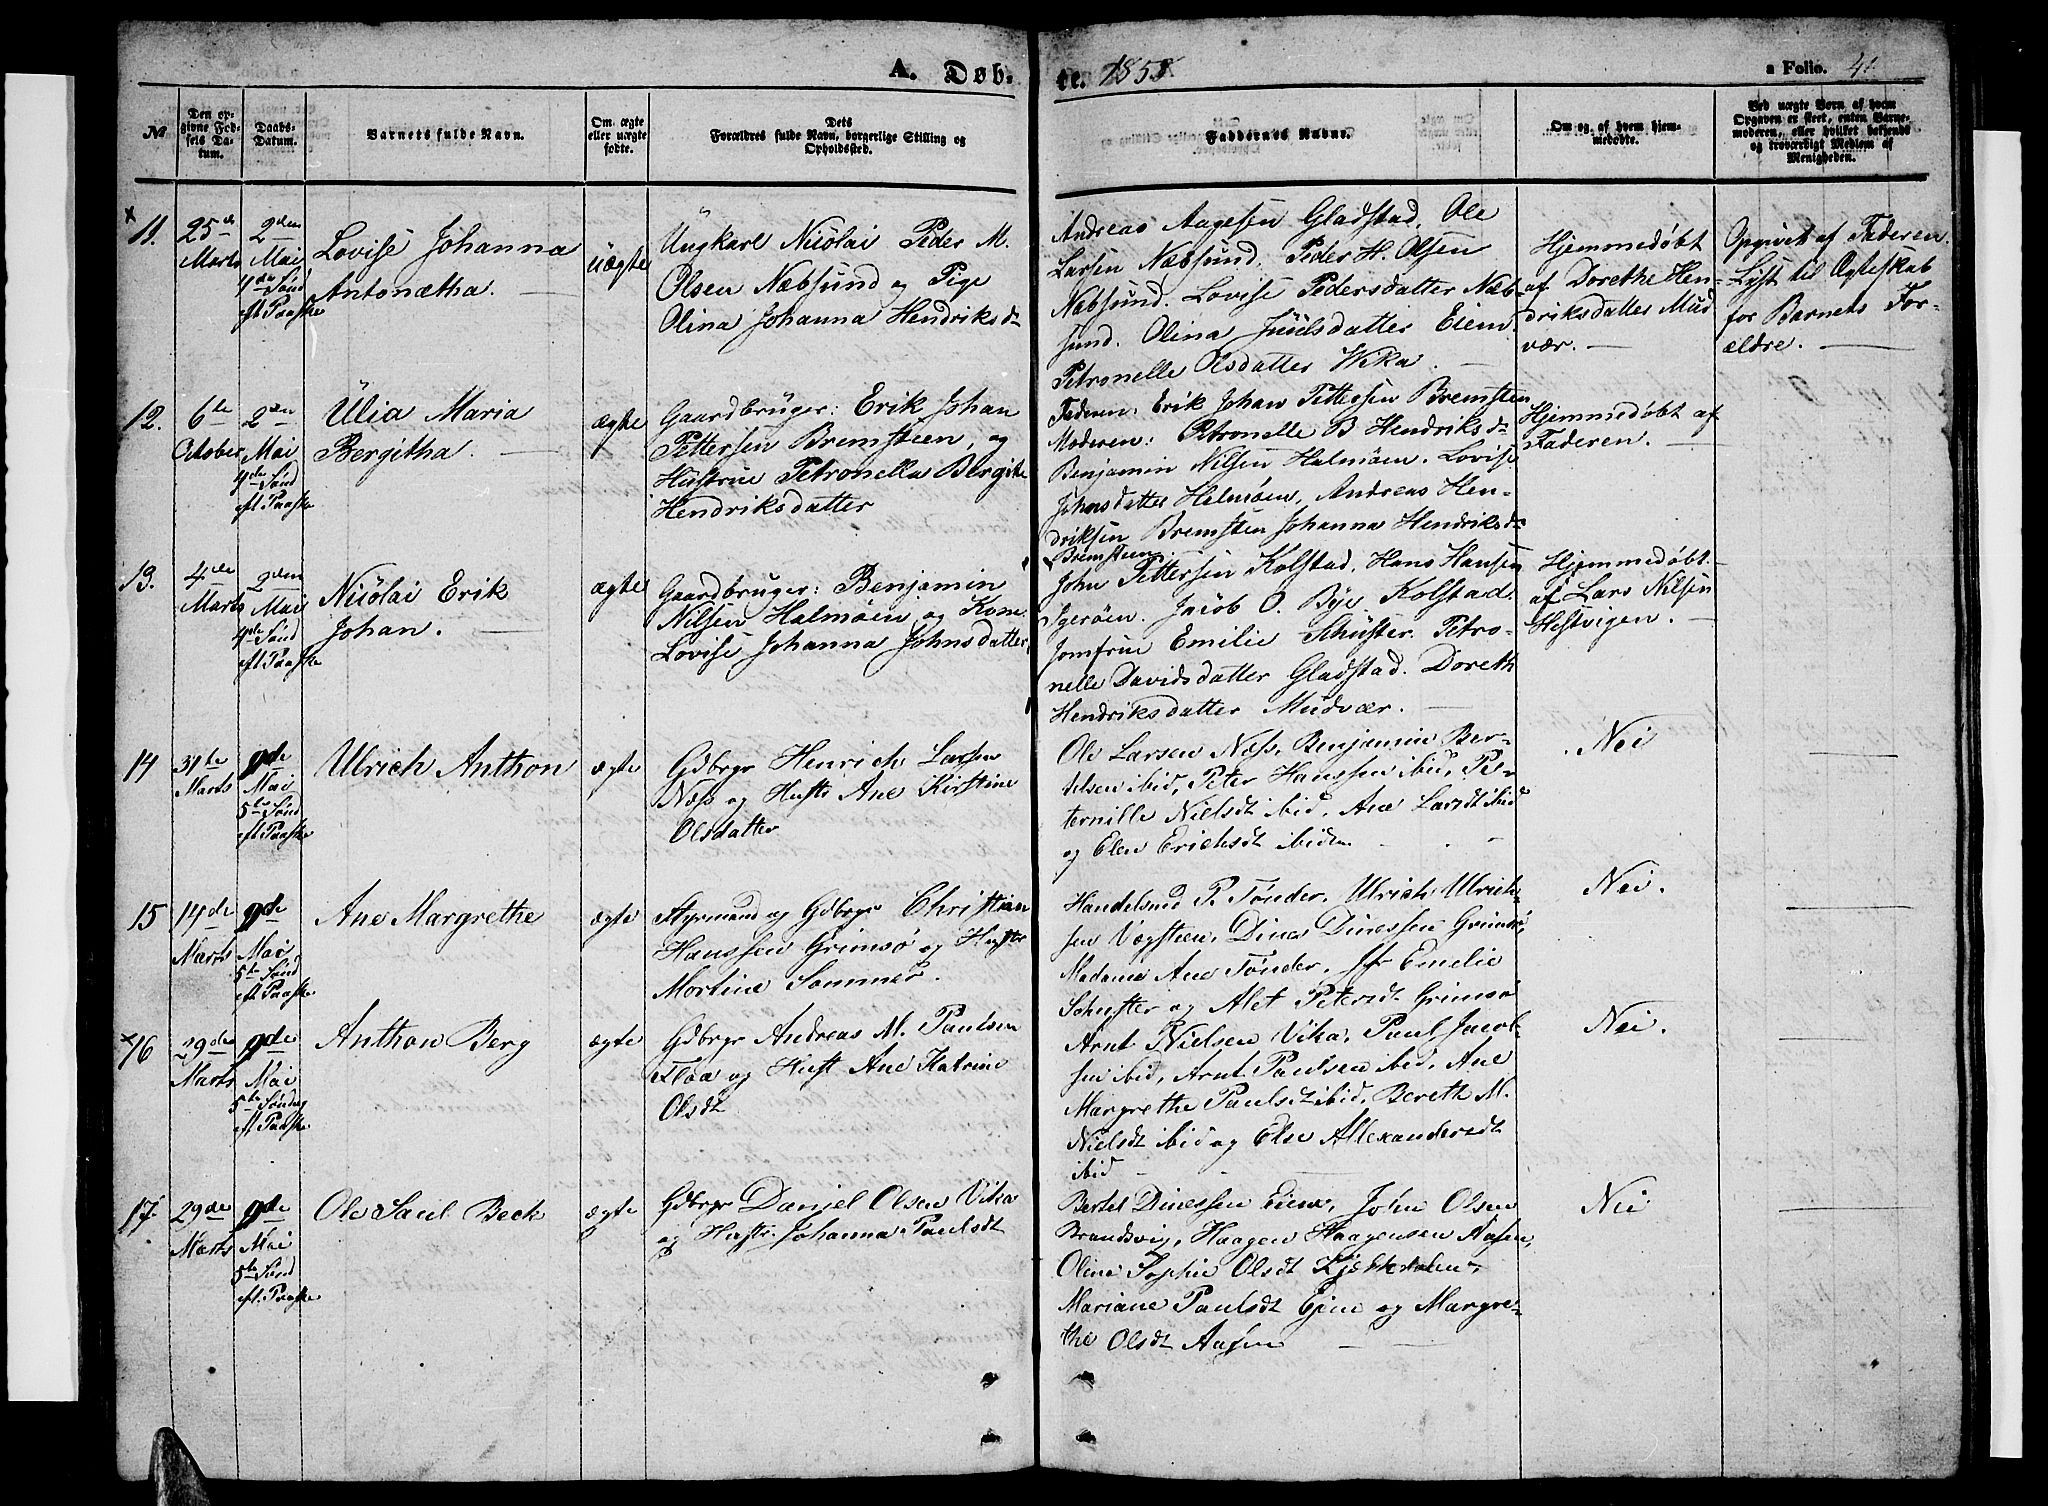 A. Døb-
te. 1858
a Folio. 41
№
Den op-
givne Fød-
sels Da-
tum.
Daabs-
Datum.
Barnets fulde Navn.
Om ægte
eller uægte
fødte.
Dets
Forældres fulde Navn, borgerlige Stilling og
Opholdssted.
Faddernes Navne.
Om og af hvem hjem-
medøbte.
Ved uægte Børn, af hvem
Opgaven er skeet, enten Barne-
moderen, eller hvilket bekjendt
og troværdigt Medlem af
Menigheden.
11.
25de
Marts
2den
Mai
4de Sønd
eft Paaske
Lovise Johanna
Antonætha.
uægte
Ungkarl Nicolai Peder M.
Olsen Næbsund og Pige
Olina Johanna Hendriksd
Andreas Aagesen Gladstad. Ole
Larsen Næbsund. Peder H. Olsen
Næbsund. Lovise Pedersdatter Næb-
sund. Olina Juulsdatter Eiem
Petronelle Olsdatter Wika.
Hjemmedøbt
af Dorethe Hen-
driksdatter Mud
vær.
Opgivet af Faderen.
Lyst til Ægteskab
for Barnets For-
ældre.
12.
6te
October
2den
Mai
4de Sønd
eft Paaske
Ulia Maria
Bergitha.
ægte
Gaardbruger: Erik Johan
Pettersen Bremsteen, og
Hustrue Petronella Bergite
Hendriksdatter
Faderen: Erik Johan Pettersen Bremsten
Moderen: Petronelle B Hendriksd
Benjamin Nilsen Halmøen. Lovise
Johnsdatter Helmøen, Andreas Hen-
driksen Bremsten Johanna Hendriksd
Bremsteen.
Hjemmedøbt af
Faderen.
13.
4de
Marts
2den
Mai
4de Sønd
eft Paaske
Nicolai Erik
Johan.
ægte
Gaardbruger: Benjamin
Nilsen Halmøen og Kone
Lovise Johanna Johnsdatter
John Pettersen Kolstad. Hans Hansen
Igerøen. Jacob O. Bye Kolstad
Jomfrue Emilie Schuster. Petro-
nelle Davidsdatter Gladstad. Doreth
Hendriksdatter Mudvær.
Hjemmedøbt
af Lars Nilsen
Hestvigen.
14
31te
Marts
9de
Mai
5te Sønd
eft Paaske
Ulrich Anthon
ægte
Gdbrgr Henrich Larsen
Næss og Hustr Ane Kirstine
Olsdatter
Ole Larsen Næss, Benjamin Ber-
telsen ibid, Peter Hanssen ibid, Pe-
ternille Nielsdt ibid, Ane Larsdt ibid
og Elen Erichsdt ibidm
Nei
15
14de
Marts
9de
Mai
5te Sønd
eft Paaske
Ane Margrethe
ægte
Styrmand og Gdbrgr Christian
Hanssen Grimsø og Hustr
Martine Sommer.
Handelsmd P. Tønder, Ulrich Ulrich-
sen Vægsteen, Dines Dinessen Grimsø,
Madame Ane Tønder, Jfr Emelie
Schuster og Alet Petersdt Grimsø
Nei.
16
29de
Marts
9de
Mai
5te Søndag
eft Paaske
Anthon Berg
ægte
Gdbrgr Andreas M. Paulsen
Floa og Hust Ane Katrine
Olsdt
Arnt Nielsen Vika, Paul Jacob-
sen ibid, Arnt Paulsen ibid, Ane
Margrethe Paulsdt ibid, Bereth M.
Nielsdt ibid og Else Allexandersdt
ibid
Nei.
17.
29de
Marts
9de
Mai
5te Sønd
eft. Paaske
Ole Saul Beck
ægte
Gdbrgr Daniel Olsen Vika
og Hustr. Johanna Paulsdt
Bertel Dinessen Eiem, John Olsen
Brandsvig, Haagen Haagensen Aasen,
Oline Sophie Olsdt Kjækkdalen,
Mariane Paulsdt Ejem og Margre-
the Olsdt Aasen
Nei